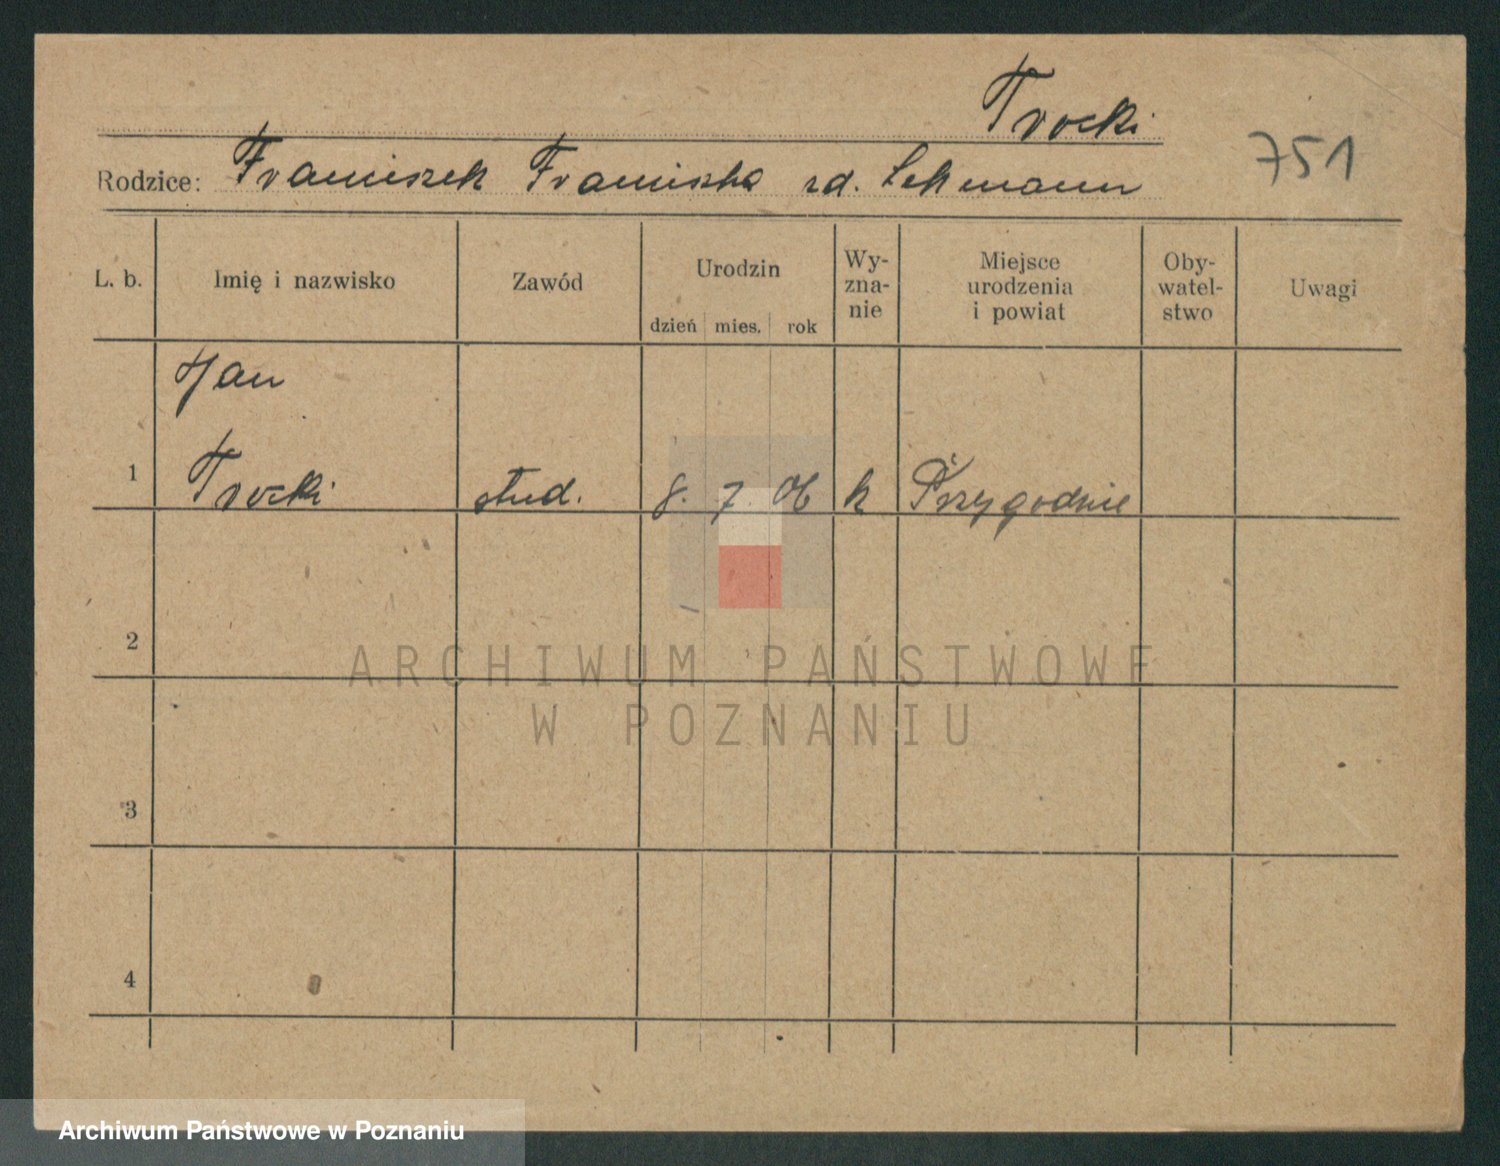 Trocki
751
Rodzice: Franciszek Franciszka zd. Lehmann
L. b. Imię i nazwisko Zawód Urodzin dzień mies. rok Wy-zna-nie Miejsce urodzenia i powiat Oby-watel-stwo Uwagi
Jan
1 Trocki stud. 8. 7. 06 k Przygodzie
2
ARCHIWUM PAŃSTWOWE
W POZNANIU
3
4
Archiwum Państwowe w Poznaniu